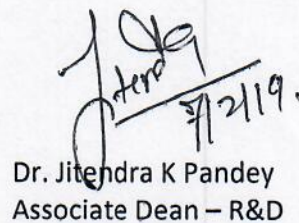 Jitendra
7/2/19.
Dr. Jitendra K Pandey
Associate Dean – R&D